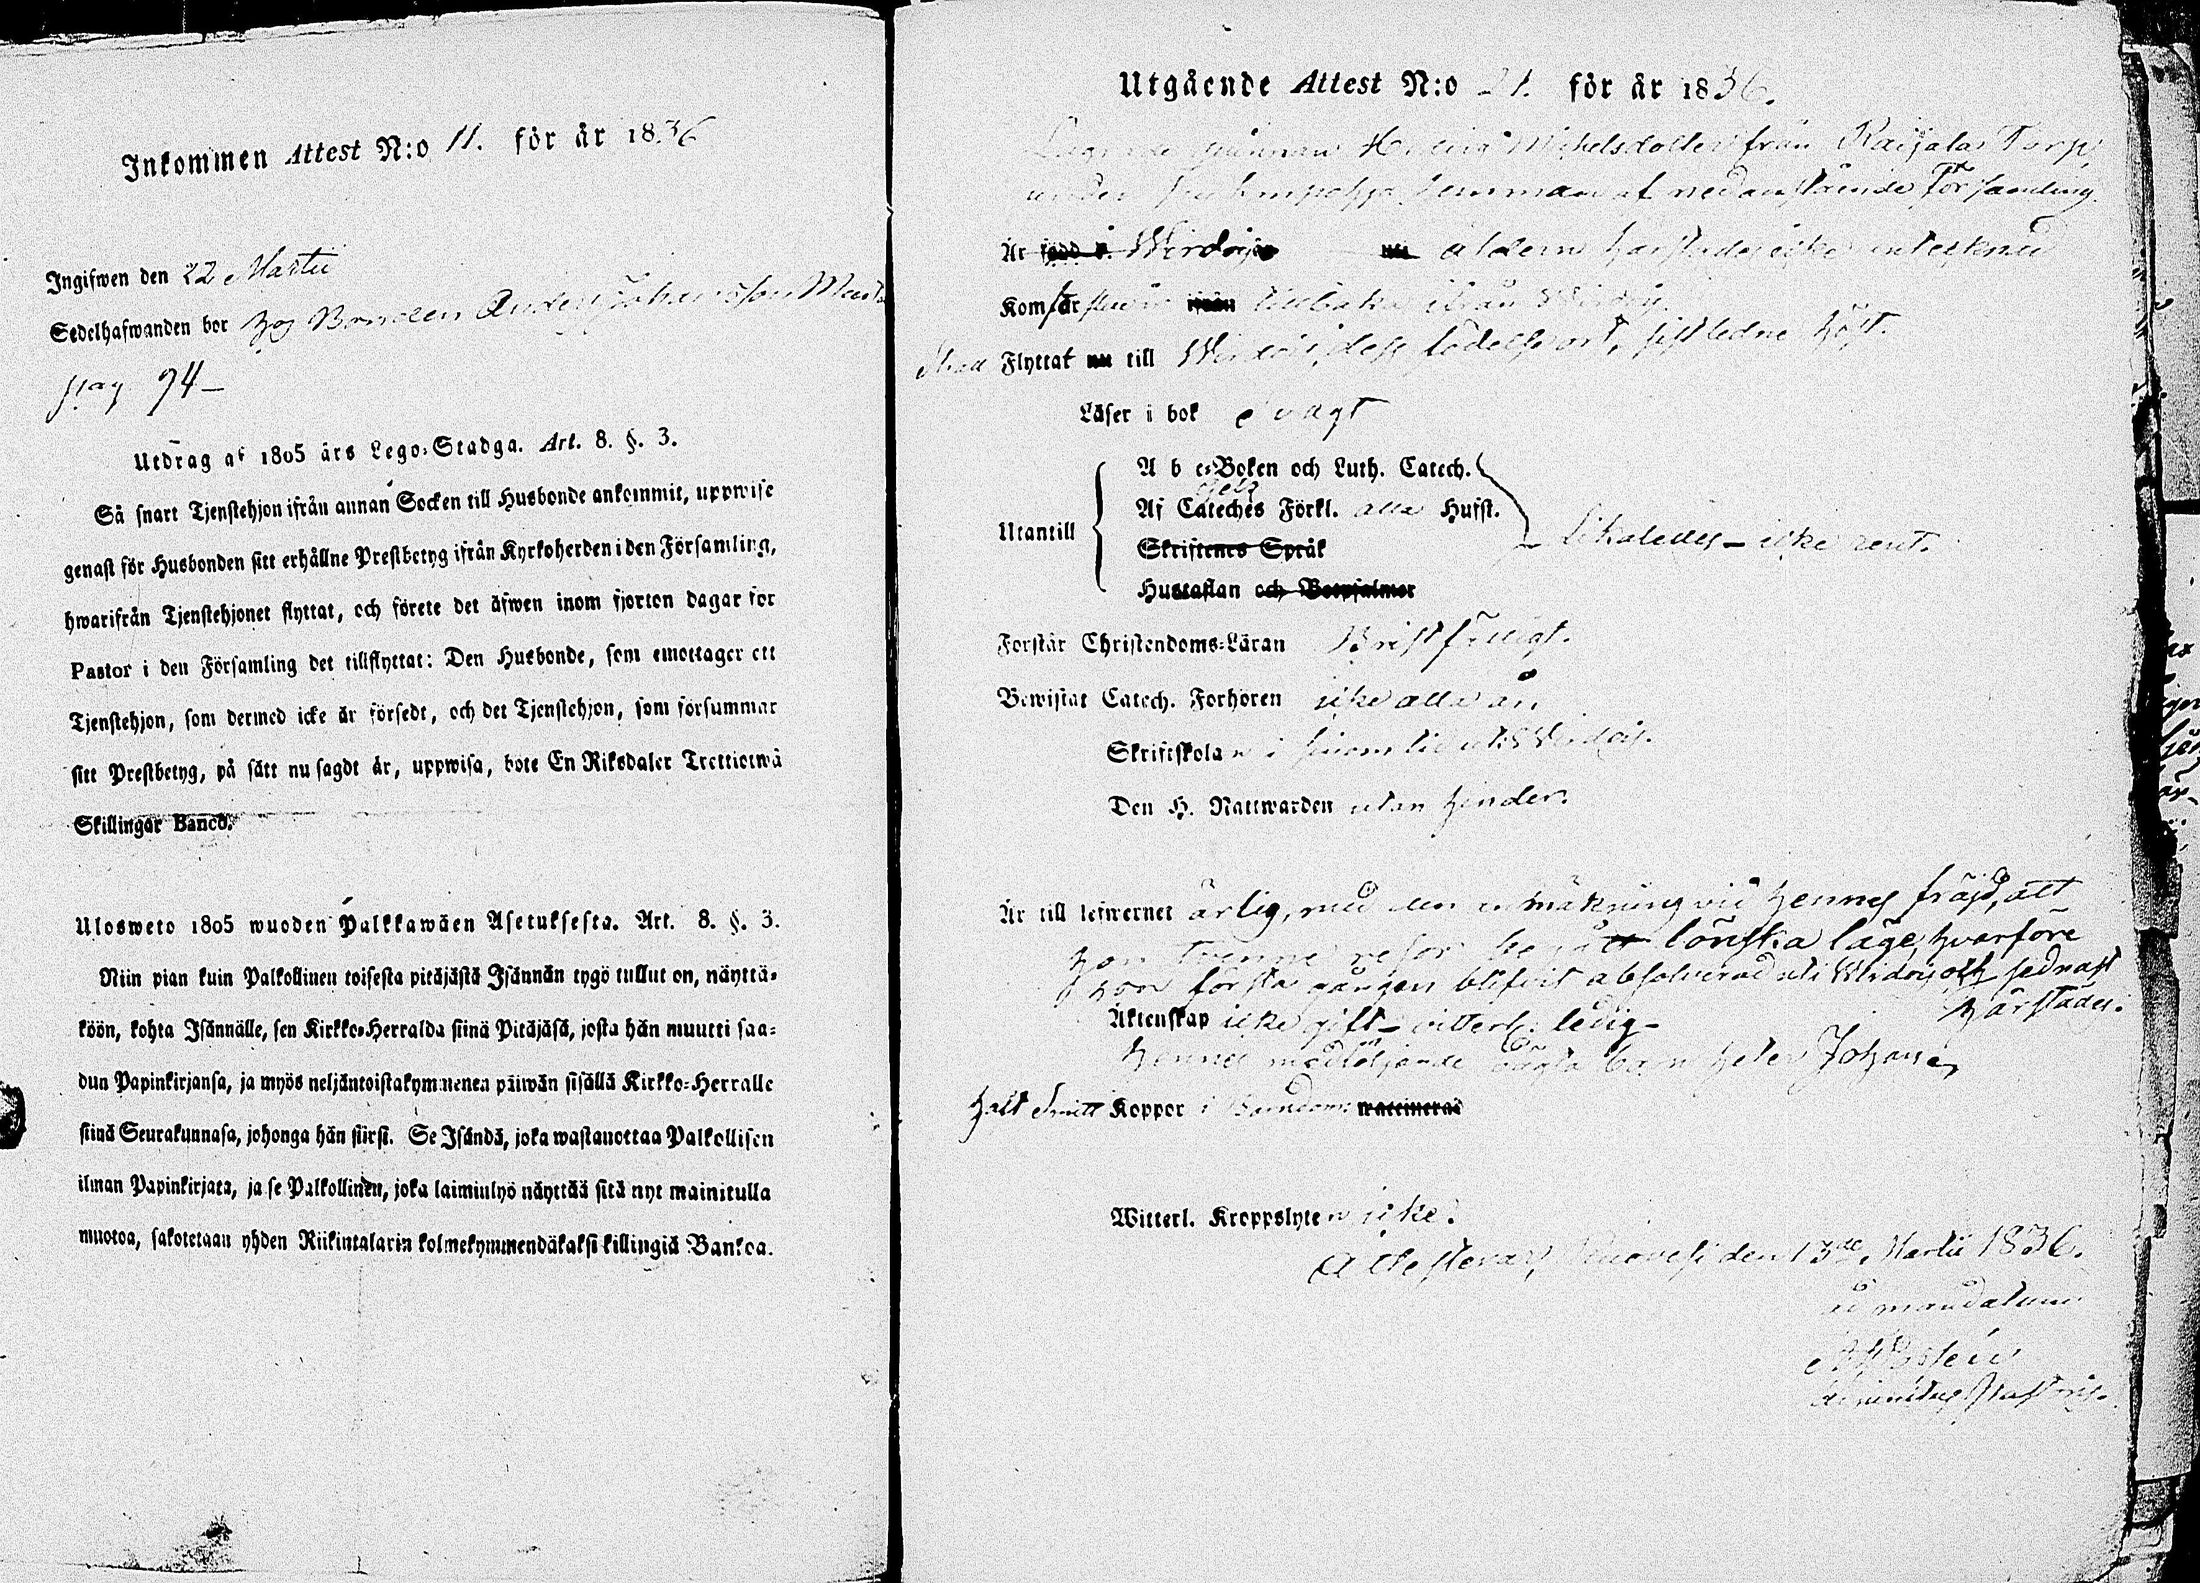 Inkommen Attest N:o 11. för år 1836
Ingifwen den 22 Martii
Sedelhafwanden bor hos Bonden Anders Johansson
pag 94 –
Utdrag af 1805 års Lego-Stadga. Art. 8. §. 3.
Så snart Tjenstehjon ifrån annan Socken till Husbonde ankommit, uppwise
genast för Husbonden sitt erhållne Prestbetyg ifrån Kyrkoherden i den Församling,
hwarifrån Tjenstehjonet flyttat, och förete det äfwen inom fjorton dagar för
Pastor i den Församling det tillflyttat: Den Husbonde, som emottager ett
Tjenstehjon, som dermed icke är försedt, och det Tjenstehjon, som försummar
sitt Prestbetyg, på sätt nu sagdt är, uppwisa, böte En Riksdaler Trettiotwå
Skillingar Banco.
Ulosweto 1805 wuoden Palkkawäen Asetuksesta. Art. 8. §. 3.
Niin pian kuin Palkollinen toisesta pitäjästä Isännän tygö tullut on, näyttä-
köön, kohta Isännälle, sen Kirkko-Herralda siinä Pitäjäsä, josta hän muutti saa-
dun Papinkirjansa, ja myös neljäntoistakymmenen päiwän sisällä Kirkko-Herralle
siinä Seurakunnasa, johonga hän siirsi. Se Isändä, joka wastanottaa Palkollisen
ilman Papinkirjata, ja se Palkollinen, joka laiminlyö näyttää sitä nyt mainitulla
muotoa, sakotetaan yhden Riikintalarin kolmekymmendäkaksi killingiä Bankoa.
Utgående Attest N:o 21. för år 1836.
Michelsdotter från Raijala Torp,
under hemman af nedanstående Församling
Är född i Wirdois åldern härstädes icke antecknad
Kom ifrån tillbaka ifrån Wirdois.
Skall Flyttat nu till Wirdois, dess födelseort, sistledne höst.
Läser i bok svagt
Utantill
A b c-Boken och Luth. Catech.
Af Cateches Förkl. alla Hufst.
Skriftenes Språk
Hustaflan och Botpsalmer
Likaledes – icke rent.
Förstår Christendoms-Läran Bristfälligt.
Bewistat Catech. Förhören icke alla år,
Skriftskolan i sinom tid uti Wirdois.
Den H. Nattwarden utan hinder.
Är till lefwernet ärlig, med den anmärkning vid hennes fräjd, att
hon tvenne resor begått lönska läge, hvarföre
hon första gången blifvit absolverad uti Wirdois och sednast
härstädes.
Äktenskap icke gift – vitterl. ledig –
Hennes medföljande oägta barn heter Johan
Haft Smitt Koppor i Barndom waccinerad
Witterl. Kroppslyten icke.
Attesterar, Ruovesi den 13de Martii 1836.
ad mandatum